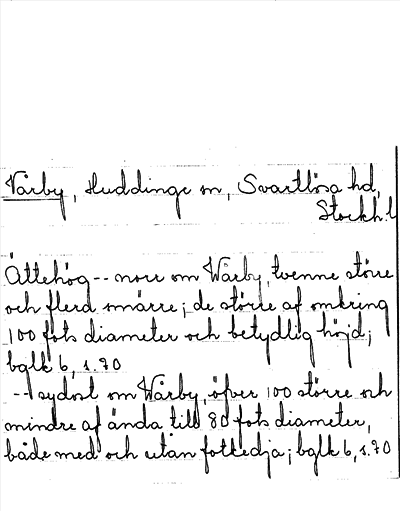 Vårby, Huddinge sn, Svartlösa hd,
Stockh. l
Ättehög -- norr om Wårby, tvenne större
och flera smärre; de större af omkring
100 fots diameter och betydlig höjd;
bglk 6, s. 70
-- I sydost om Wårby, öfver 100 större och
mindre af ända till 80 fots diameter,
både med och utan fotkedja; bglk 6, s. 70